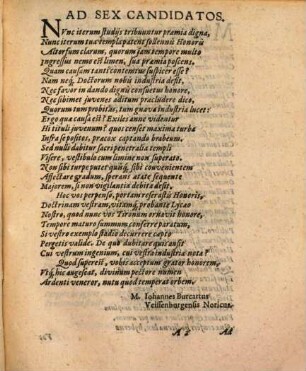 AD SEX CANDIDATOS.
NVnc iterum studijs tribuuntur præmia digna,
Nunc iterum tua templa patent sollennis Honoris
Ad tuum clarum, quorum jam tempore multo
Ingressus nemo est limen, sua præmia poscens.
Quam causam tanti contemtus suspicer esse?
Nam neq; Doctorum nobis industria desit,
Nec favor in dando dignis consuetus honore,
Nec sibimet juvenes aditum præcludere dico,
Quorum tum probitas, tum gnava industria lucet:
Ergo qua causa est? Exiles anne videntur
Hi tituli juvenum? quos censet maxima turba
Infra se positos, præcox captando brabeum.
Sed nulli dabitur sacri penetralia templi
Visere, vestibulo cum limine non superato.
Non sibi turpe putet quisq;, sibi convenientem
Affectare gradum, sperans ætate sequente
Majorem, si non vigilantia debita desit.
Hoc vos perpenso, pertam referastis Honoris,
Doctrinam vestram, vitamq́; probante Lycæo
Nostro, quod nunc vos Tironum ornavit honore,
Tempore maturo summum conferre paratum,
Si vestro exemplo studio decurrere capto
Pergetis valide. De quo dubitare quis ausit
Cui vestrum ingenium, cui vestra industria nota?
Quod superest, vobis acceptum grator honorem,
Vtq́; hic augescat, divinum pectore numen
Ardenti veneror, nutu quod temperat orbem.
M. Iohannes Burcartus
Veissenburgensis Noricus.
A 2
Ad